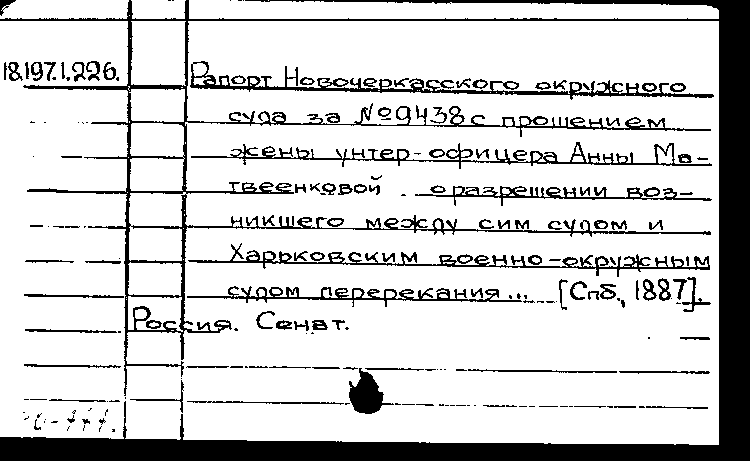 18.197.1.226. Рапорт Новочеркасского окружного
суда за №9438 с прошением
жены унтер-офицера Анны Ма-
твеенковой о разрешении воз-
никшего между сим судом и
Харьковским военно-окружным
судом пререкания... [Спб., 1887].
Россия. Сенат.